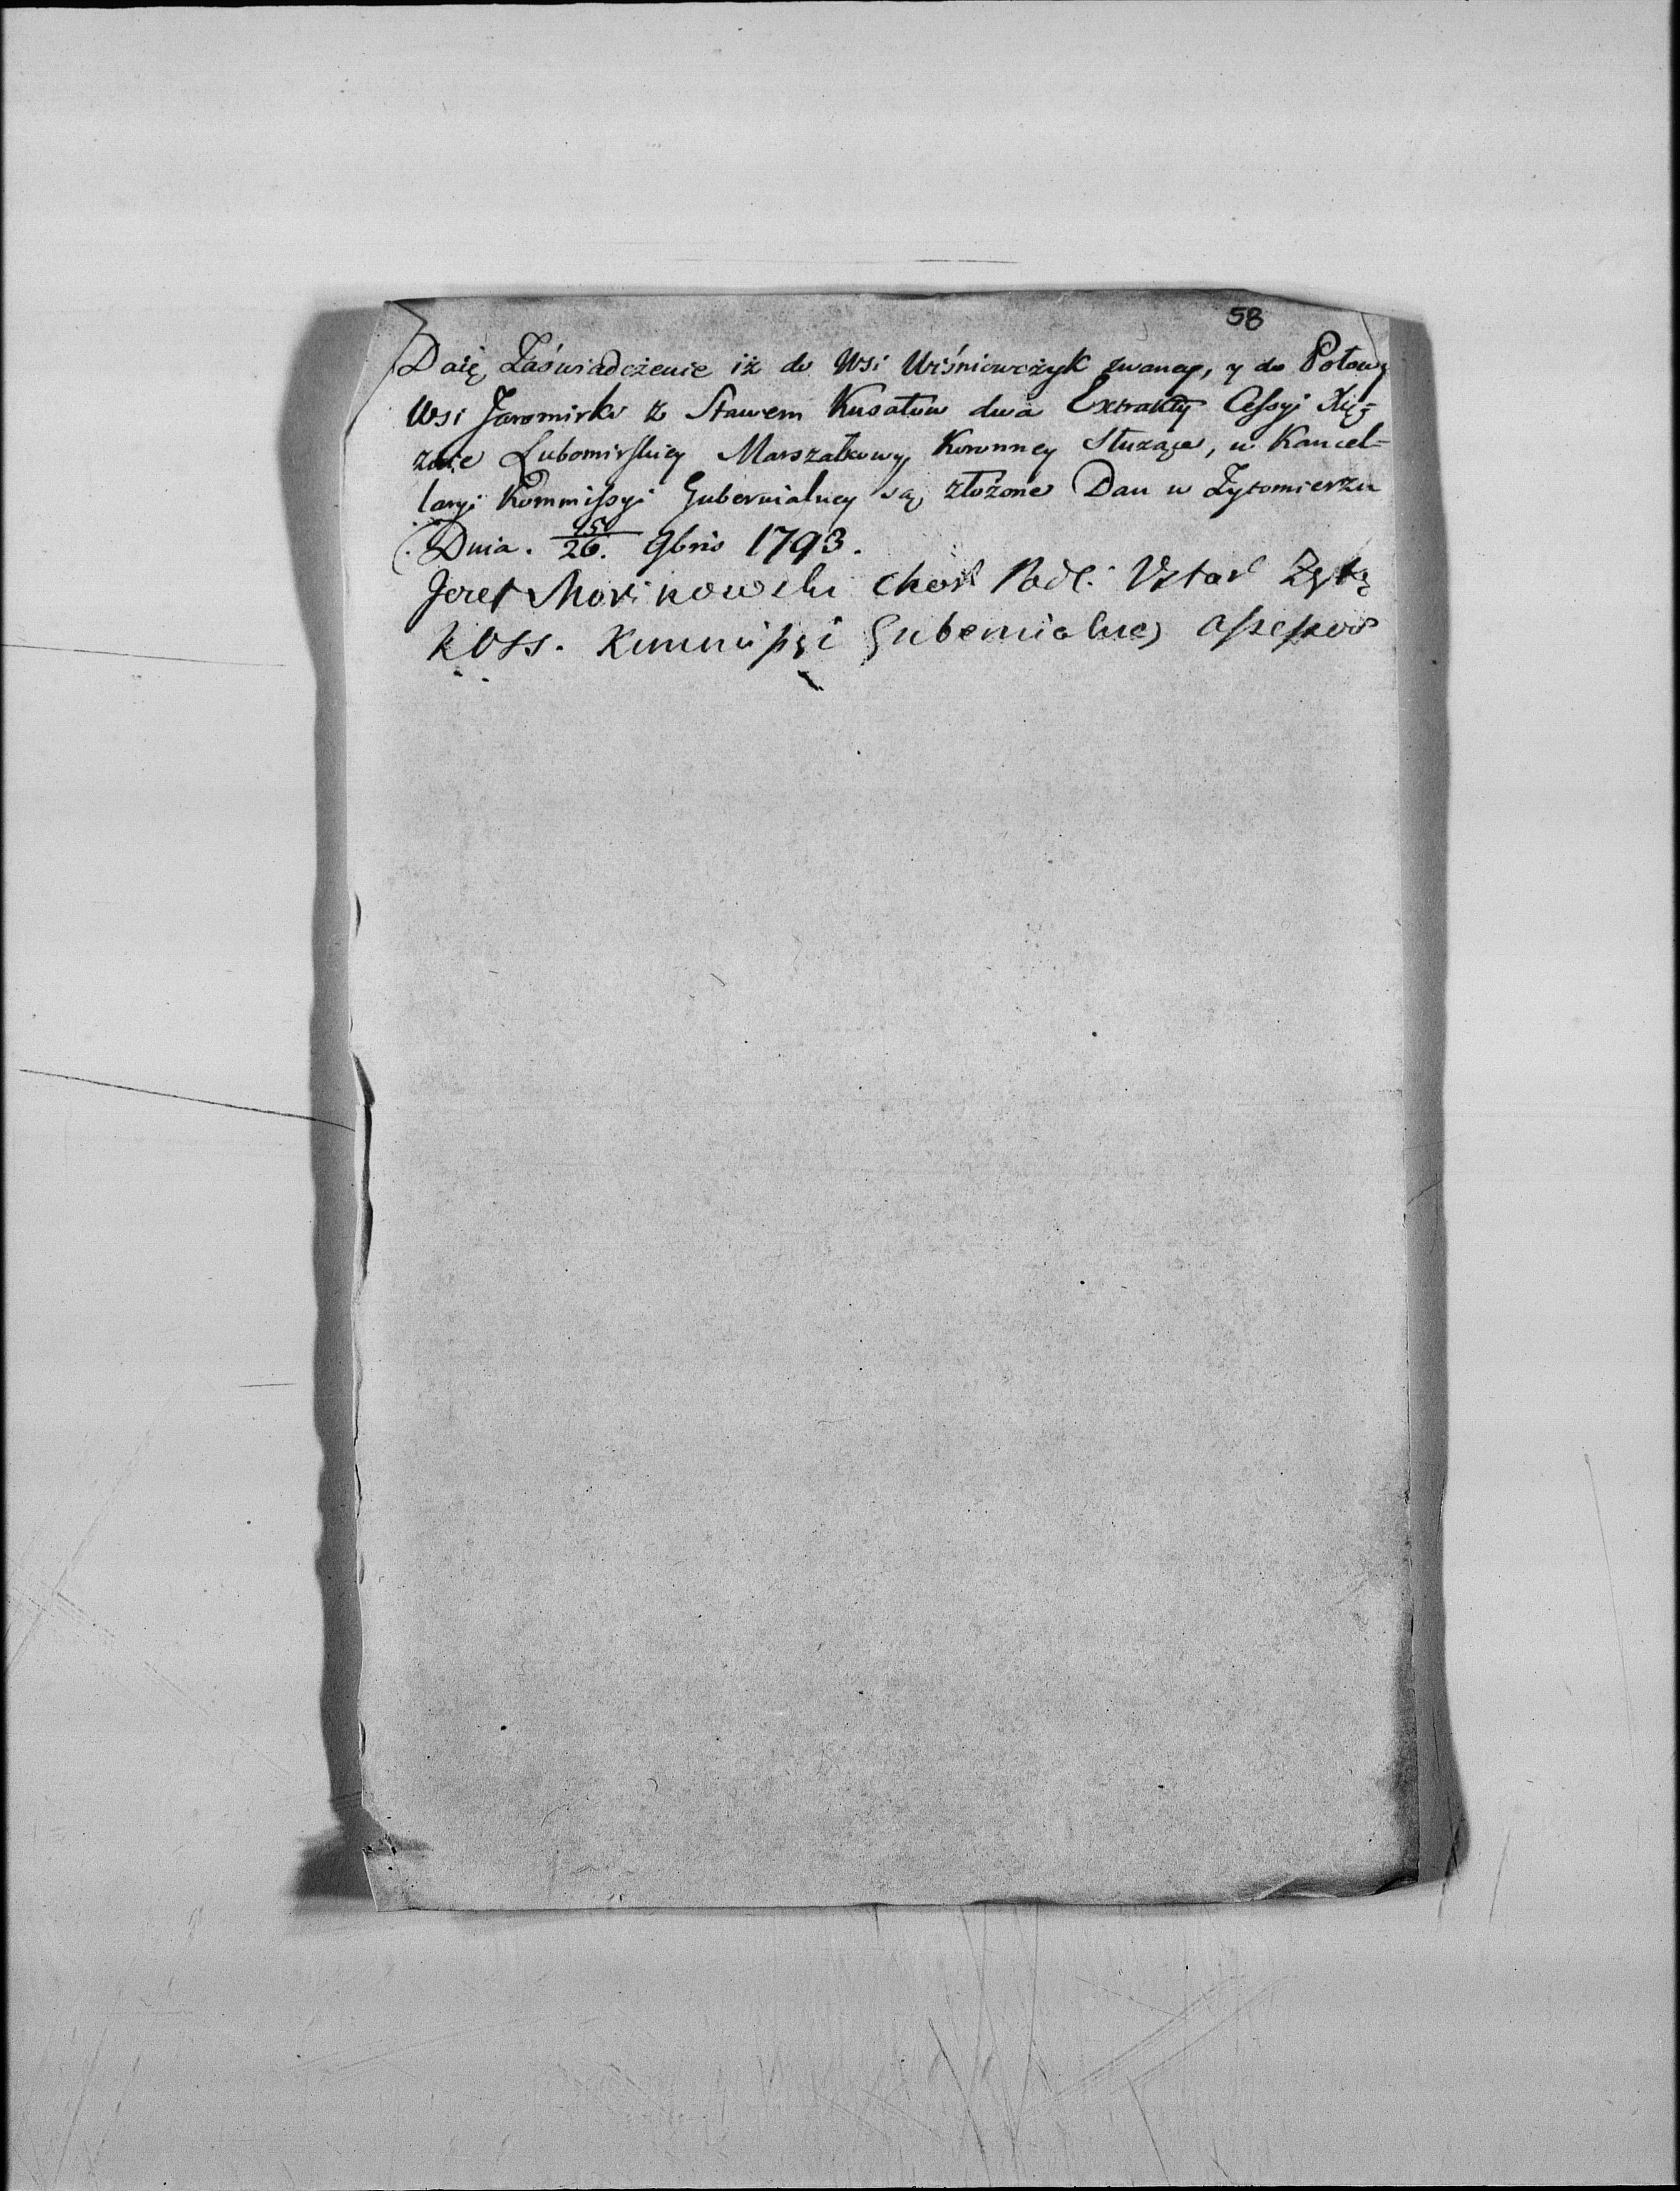 58
Daię Zaświadczenie iż do Wsi Wiśniowczyk zwaney, y do Połowy
Wsi Jaromirki z Stawem Kusatów dwa Extrakty Cessyi Xię-
żnie Lubomirskiey Marszałkowy Koronney służące, w Kancel-
laryi Kommissyi Gubernialney są złożone Dan w Zytomierzu
Dnia. 15/26. 9bris 1793.
Chor Podl:
Kommissyi Gubernialney assessor